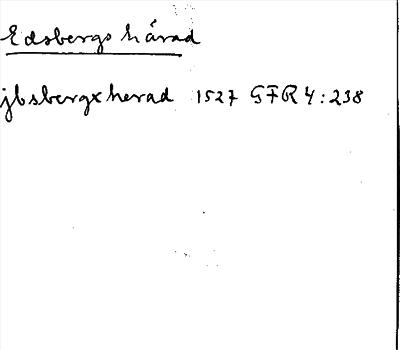 Edsbergs härad
jbsbergx herad 1527 GFR 4:238